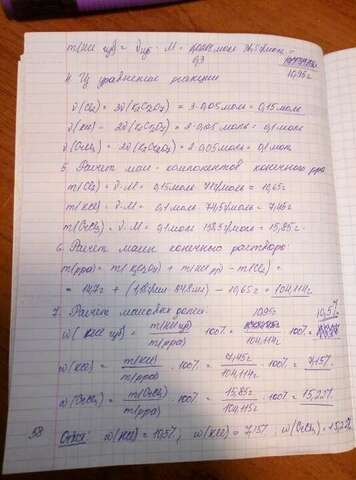 m(HCl изб) = ν изб · M = моль · 36,5 г/моль =
0,3
10,95г
4. Из уравнения реакции
ν(Cl₂) = 3ν(K₂Cr₂O₇) = 3 · 0,05 моль = 0,15 моль
ν(KCl) = 2ν(K₂Cr₂O₇) = 2 · 0,05 моль = 0,1 моль
ν(CrCl₃) = 2ν(K₂Cr₂O₇) = 2 · 0,05 моль = 0,1 моль
5. Расчет масс компонентов конечного рра
m(Cl₂) = ν · M = 0,15 моль · 71 г/моль = 10,65г
m(KCl) = ν · M = 0,1 моль · 74,5 г/моль = 7,45г
m(CrCl₃) = ν · M = 0,1 моль · 158,5 г/моль = 15,85г
6. Расчет массы конечного раствора
m(рра) = m(K₂Cr₂O₇) + m(HCl рр) - m(Cl₂) =
= 14,7г + - 10,65г = 104,114г
7. Расчет массовых долей
10,95 10,5%
ω(HCl изб) = m(HCl изб) / m(рра) · 100% = / 104,114г · 100% =
ω(KCl) = m(KCl) / m(рра) · 100% = 7,45г / 104,114г · 100% = 7,15%
ω(CrCl₃) = m(CrCl₃) / m(рра) · 100% = 15,85г / 104,114г · 100% = 15,22%
58 Ответ: ω(HCl) = 10,5% ; ω(KCl) = 7,15% ; ω(CrCl₃) = 15,22%